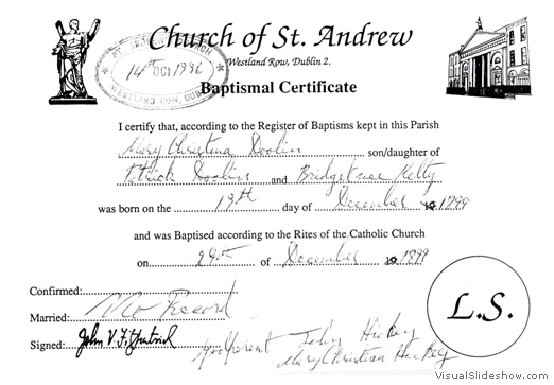 Church of St. Andrew
Westland Row, Dublin 2.
ST. ANDREW'S CHURCH
14th OCT 1992
WESTLAND ROW, DUBLIN
Baptismal Certificate
I certify that, according to the Register of Baptisms kept in this Parish
Mary Christina Doolin son/daughter of
Patrick Doolin and Bridget nee Kelly
was born on the 19th day of December 1899
and was Baptised according to the Rites of the Catholic Church
on 29th of December 1899
Confirmed:
Married: No Record
Signed: John V. Fitzpatrick
Godparent John Hickey
Mary Christian Hickey
L.S.
VisualSlideshow.com